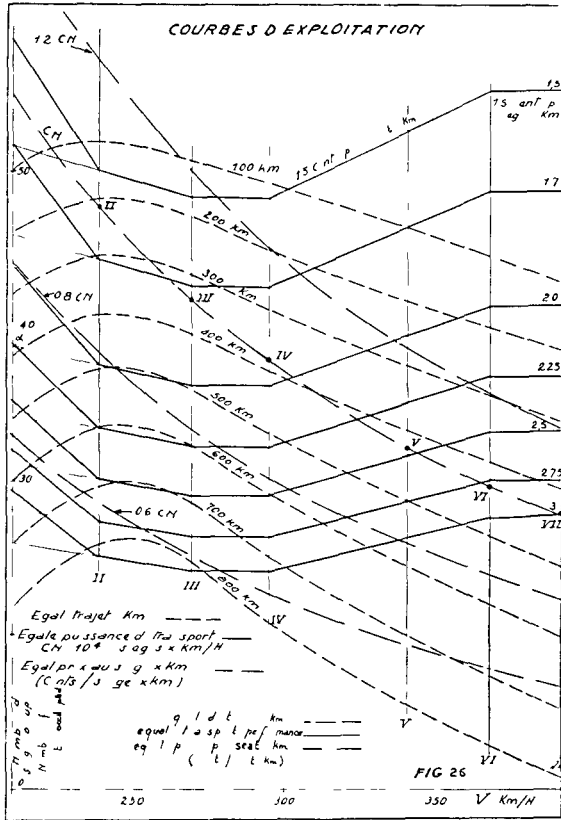 COURBES D EXPLOITATION
1.2 CN
CN
1,5
15 Cnt p t Km
15 ant p
eg Km
100 km
50
200 km
17
II
300 Km
III
08 CN
20
400 km
40
IV
500 Km
225
600 km
2,5
V
30
275
VI
06 CN
700 km
3
VII
800 km
II
III
IV
Egal trajet Km
Egale puissance d tra sport
CN 10⁴ s ag s x km/H
Egal pr x au s g x km
(C nts / s ge x km)
q l d t km
equel t a sp t pef mance
eq l p p seat km
( t / t km)
V
VI
FIG 26
0
250
300
350
V Km/H